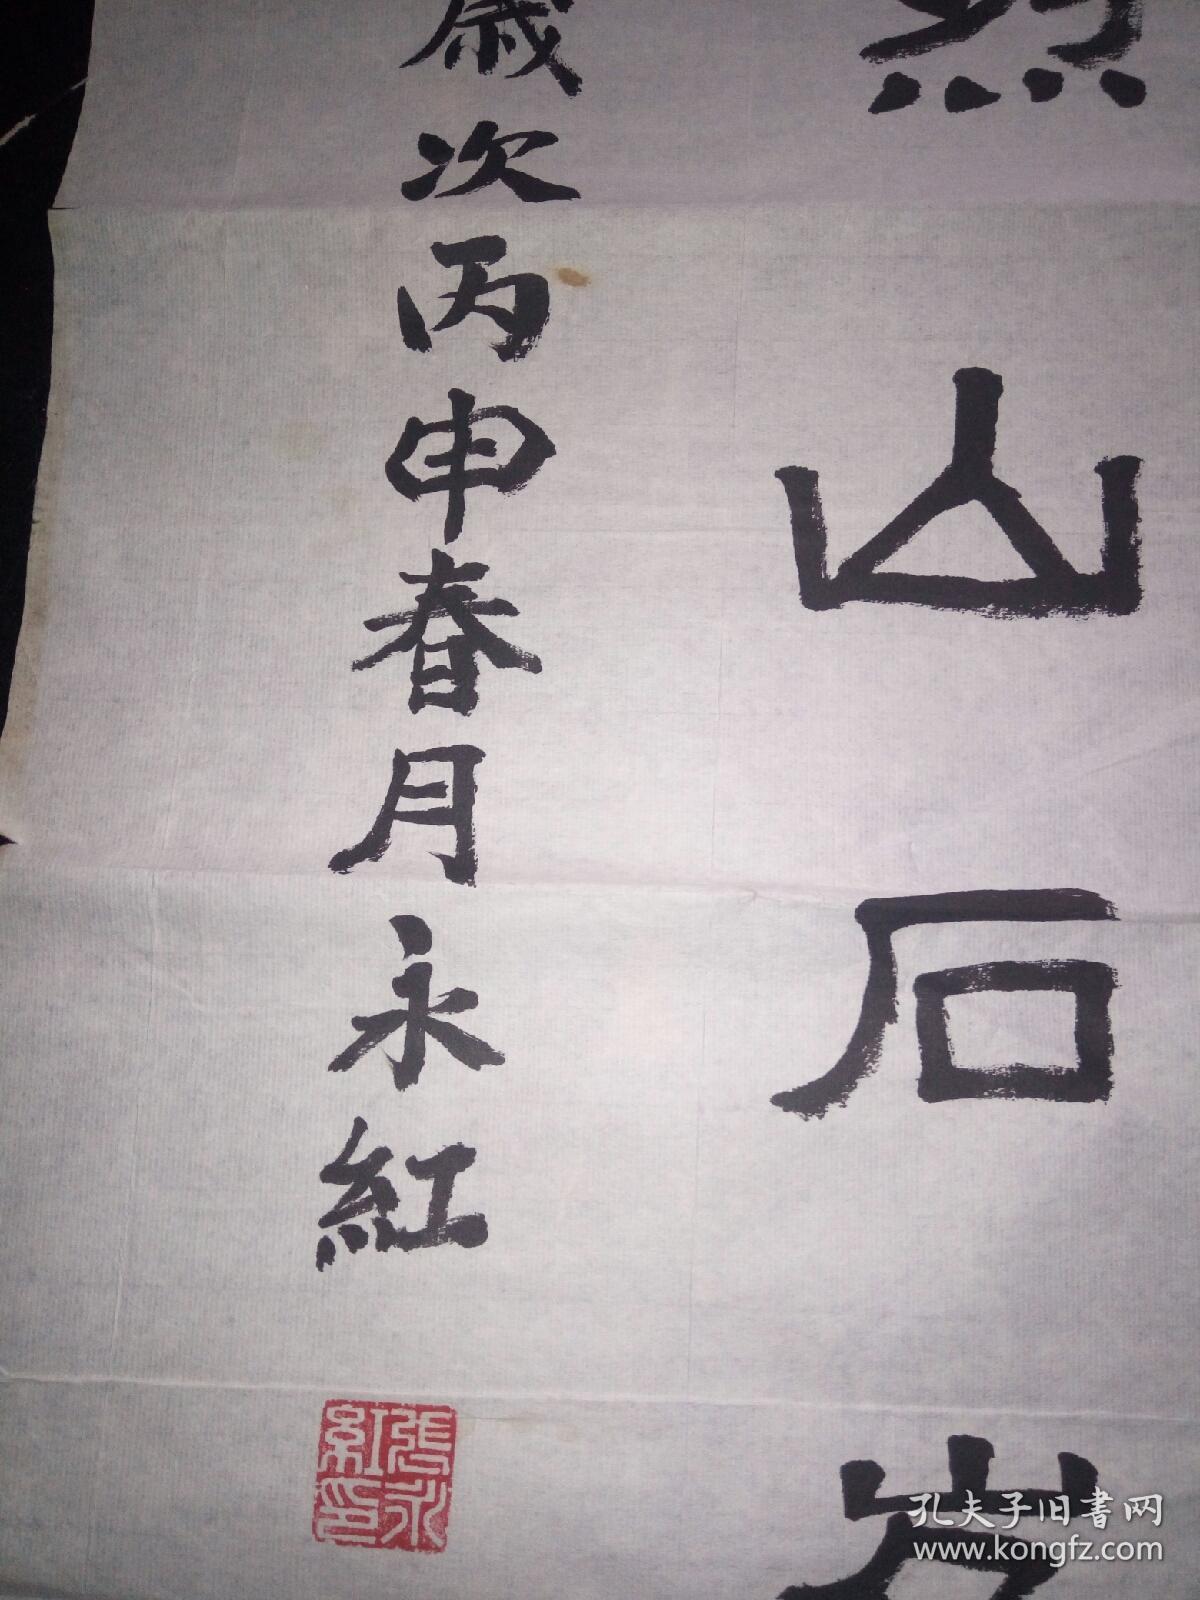 山石
歲次丙申春月永紅
張永紅印
孔夫子旧書网
www.kongfz.com